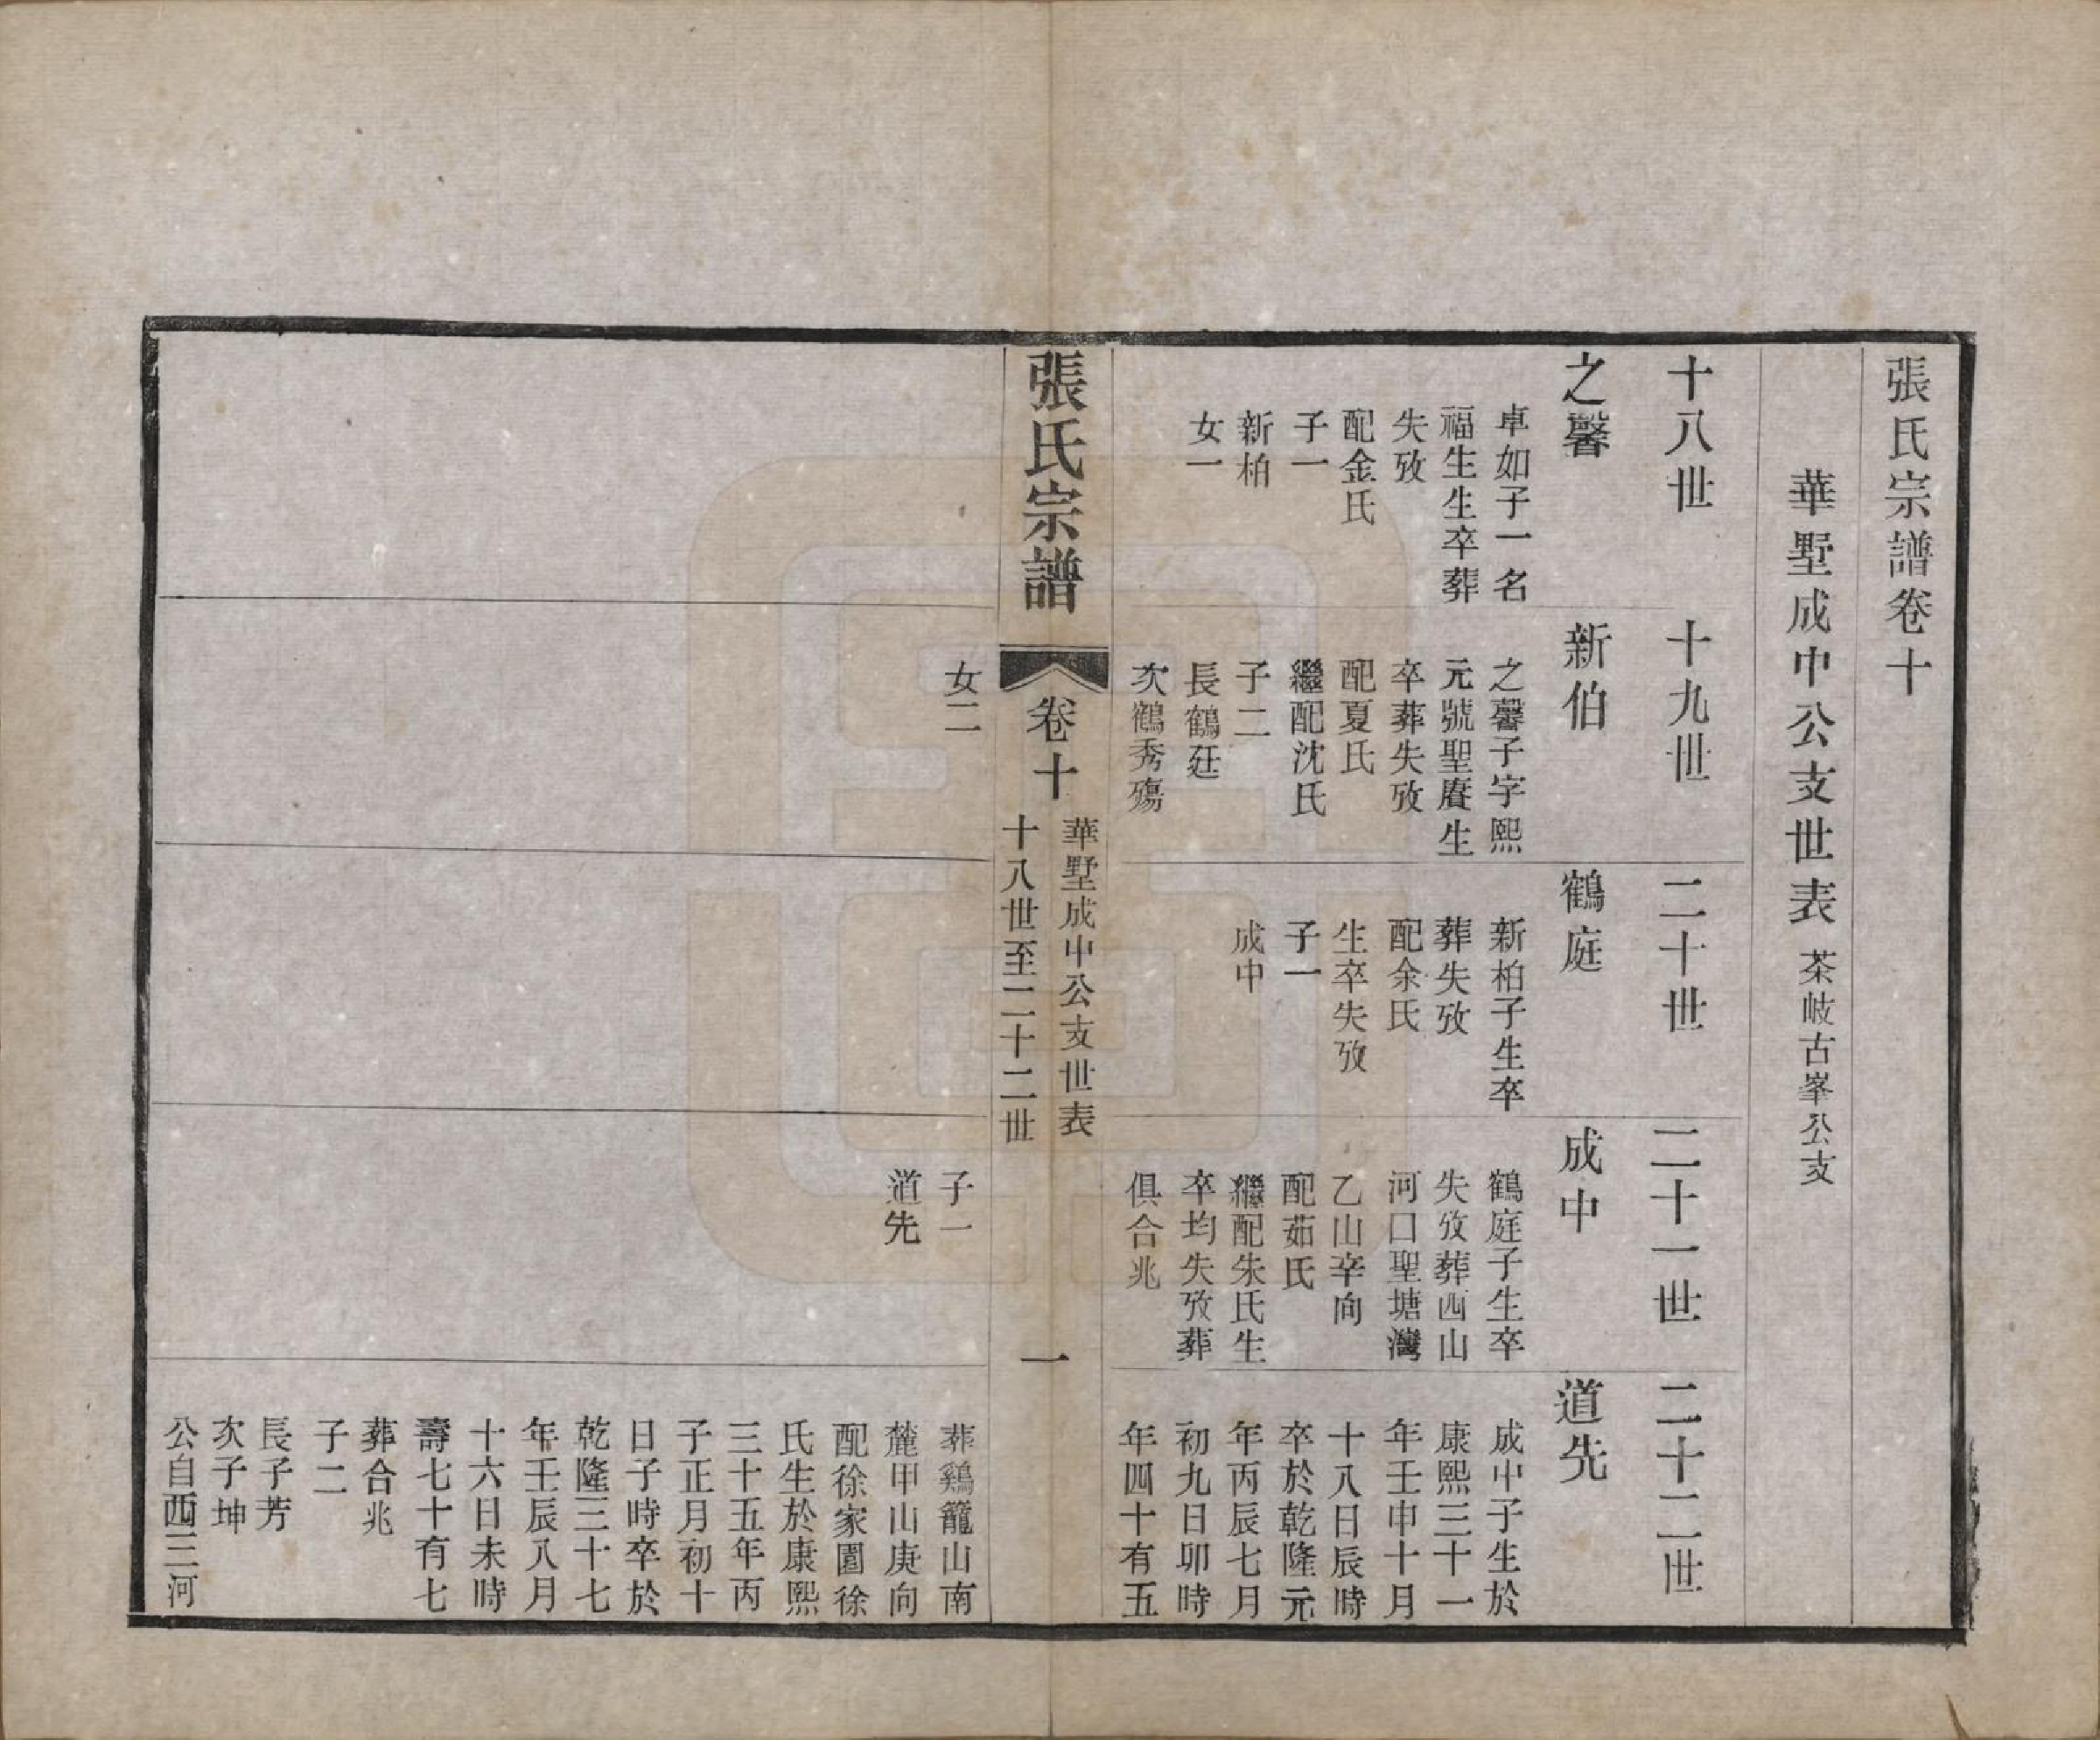 張氏宗譜卷十
華墅成中公支世表 茶岐古峯公支
十八世
之馨
卓如子一名
福生生卒葬
失攷
配金氏
子一
新柏
女一
十九世
新伯
之馨子字熙
元號聖賡生
卒葬失攷
配夏氏
繼配沈氏
子二
長鶴廷
次鶴秀殤
女二
二十世
鶴庭
新柏子生卒
葬失攷
配余氏
生卒失攷
子一
成中
二十一世
成中
鶴庭子生卒
失攷葬西山
河口聖塘灣
乙山辛向
配茹氏
繼配朱氏生
卒均失攷葬
俱合兆
子一
道先
二十二世
道先
成中子生於
康熙三十一
年壬申十月
十八日辰時
卒於乾隆元
年丙辰七月
初九日卯時
年四十有五
葬鷄籠山南
麓甲山庚向
配徐家園徐
氏生於康熙
三十五年丙
子正月初十
日子時卒於
乾隆三十七
年壬辰八月
十六日未時
壽七十有七
葬合兆
子二
長子芳
次子坤
公自西三河
張氏宗譜
卷十
華墅成中公支世表
十八世至二十二世
一